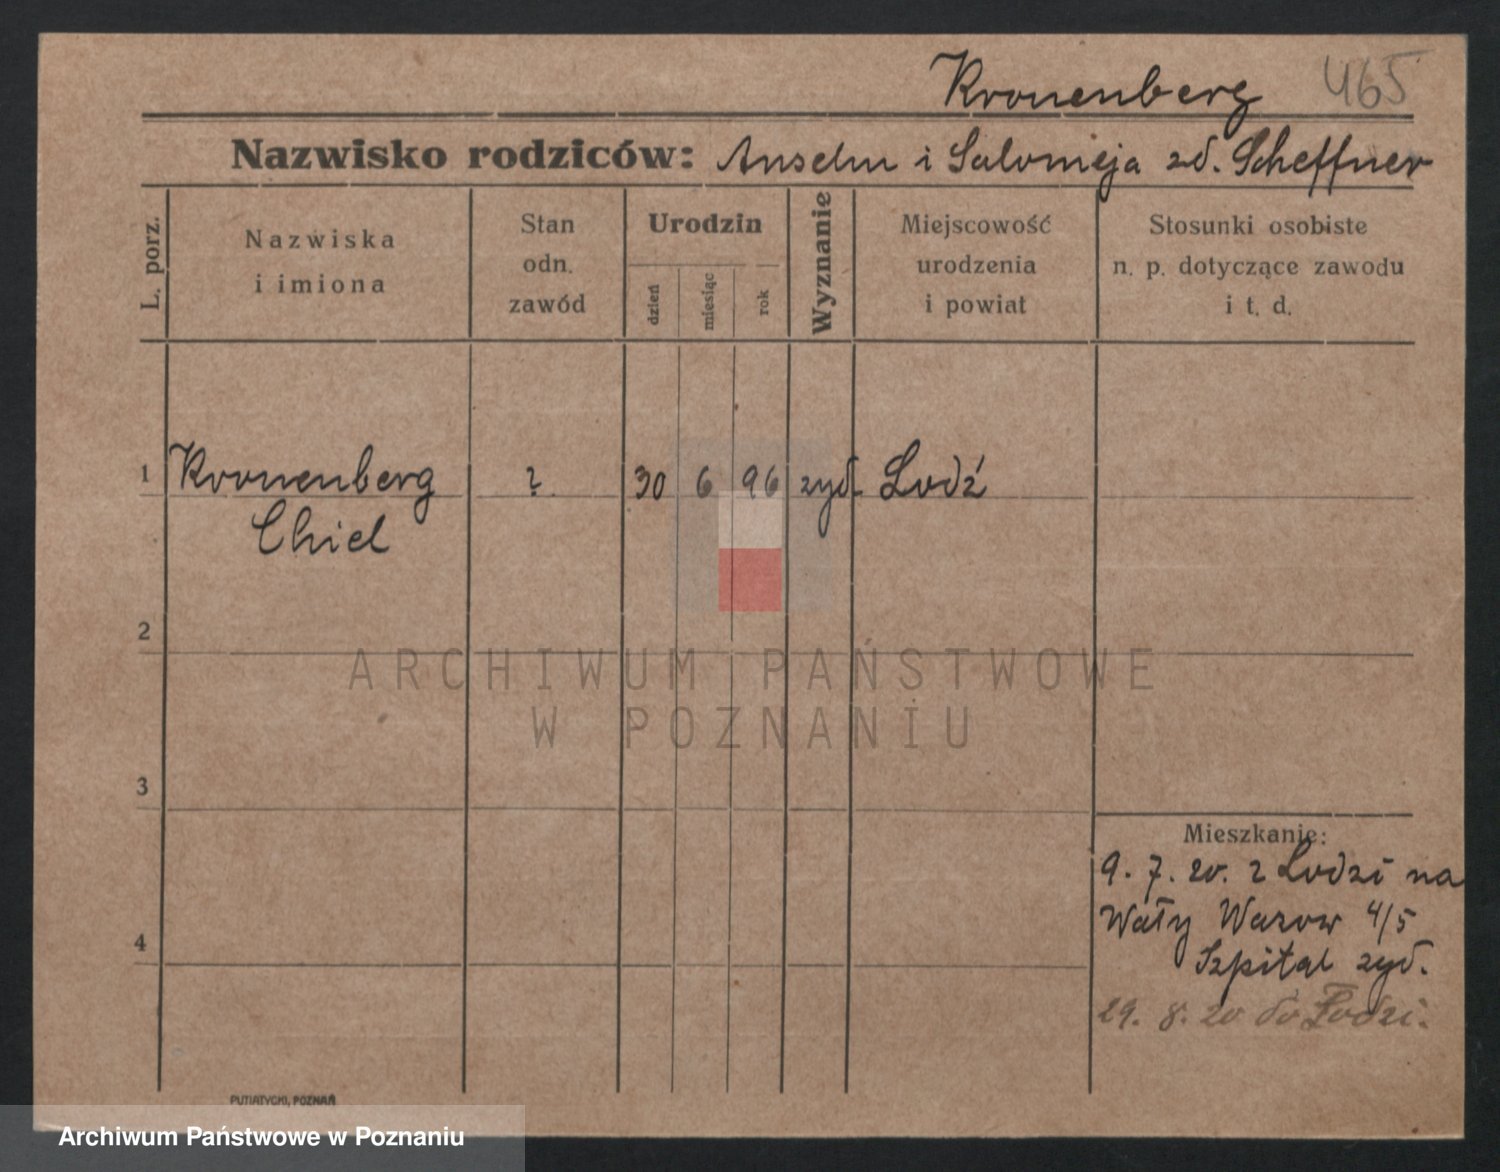 Kronenberg 465
Nazwisko rodziców: Anselm i Salomeja zd. Scheffner
L. porz.
Nazwiska
i imiona
Stan
odn.
zawód
Urodzin
dzień
miesiąc
rok
Wyznanie
Miejscowość
urodzenia
i powiat
Stosunki osobiste
n. p. dotyczące zawodu
i t. d.
1 Kronenberg ? 30 6 96 zyd. Lodź
Chiel
2
ARCHIWUM PAŃSTWOWE
W POZNANIU
3
Mieszkanie:
9. 7. 20. z Lodzi na
Wały Wazow 4/5
Szpital zyd.
4
29. 8. 20 do Łodzi.
PUTIATYCKI, POZNAŃ
Archiwum Państwowe w Poznaniu